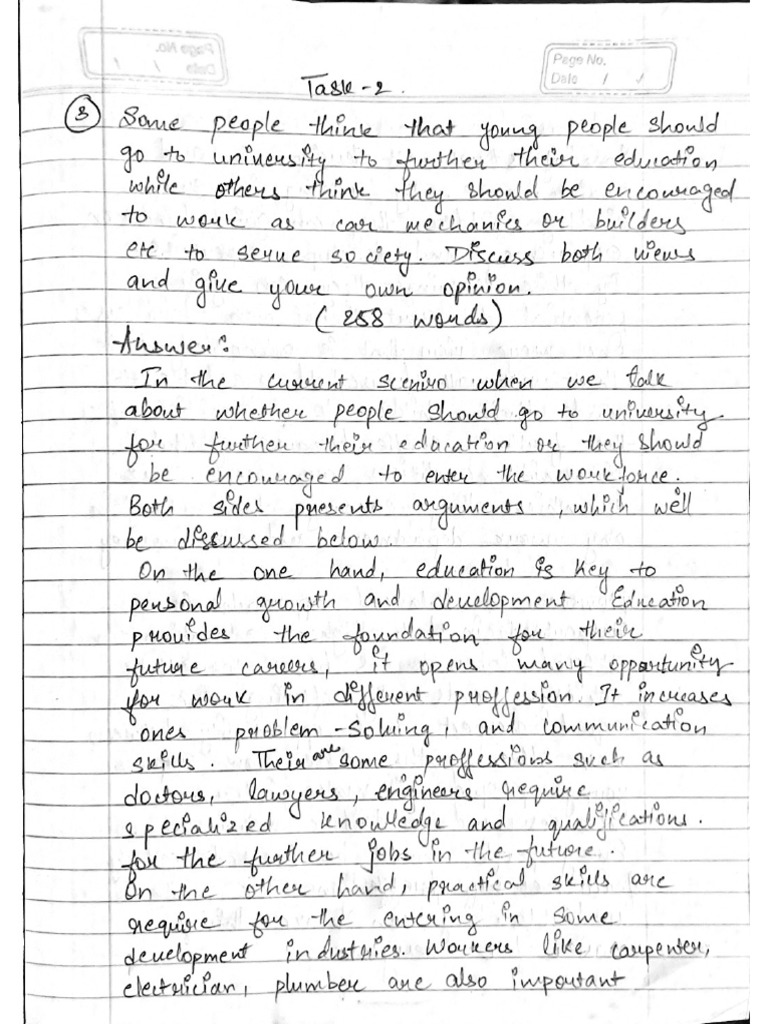 Page No.
Date
Page No.
Date / /
Task-2.
3 Some people think that young people should
go to university to further their education
while others think they should be encouraged
to work as car mechanics or builders
etc to serve society. Discuss both views
and give your own opinion.
(258 words)
Answer:
In the current sceniro when we talk
about whether people should go to university
for further their education or they should
be encouraged to enter the workforce.
Both sides presents arguments, which well
be discussed below.
On the one hand, education is key to
personal growth and development Education
provides the foundation for their
future careers, it opens many opportunity
for work in different proffession. It increases
ones problem-solving, and communication
skills. Their are some proffessions such as
doctors, lawyers, engineers require
specialized knowledge and qualifications.
for the further jobs in the future.
On the other hand, practical skills are
require for the entering in some
development industries. Workers like carpenter,
electrician, plumber are also important